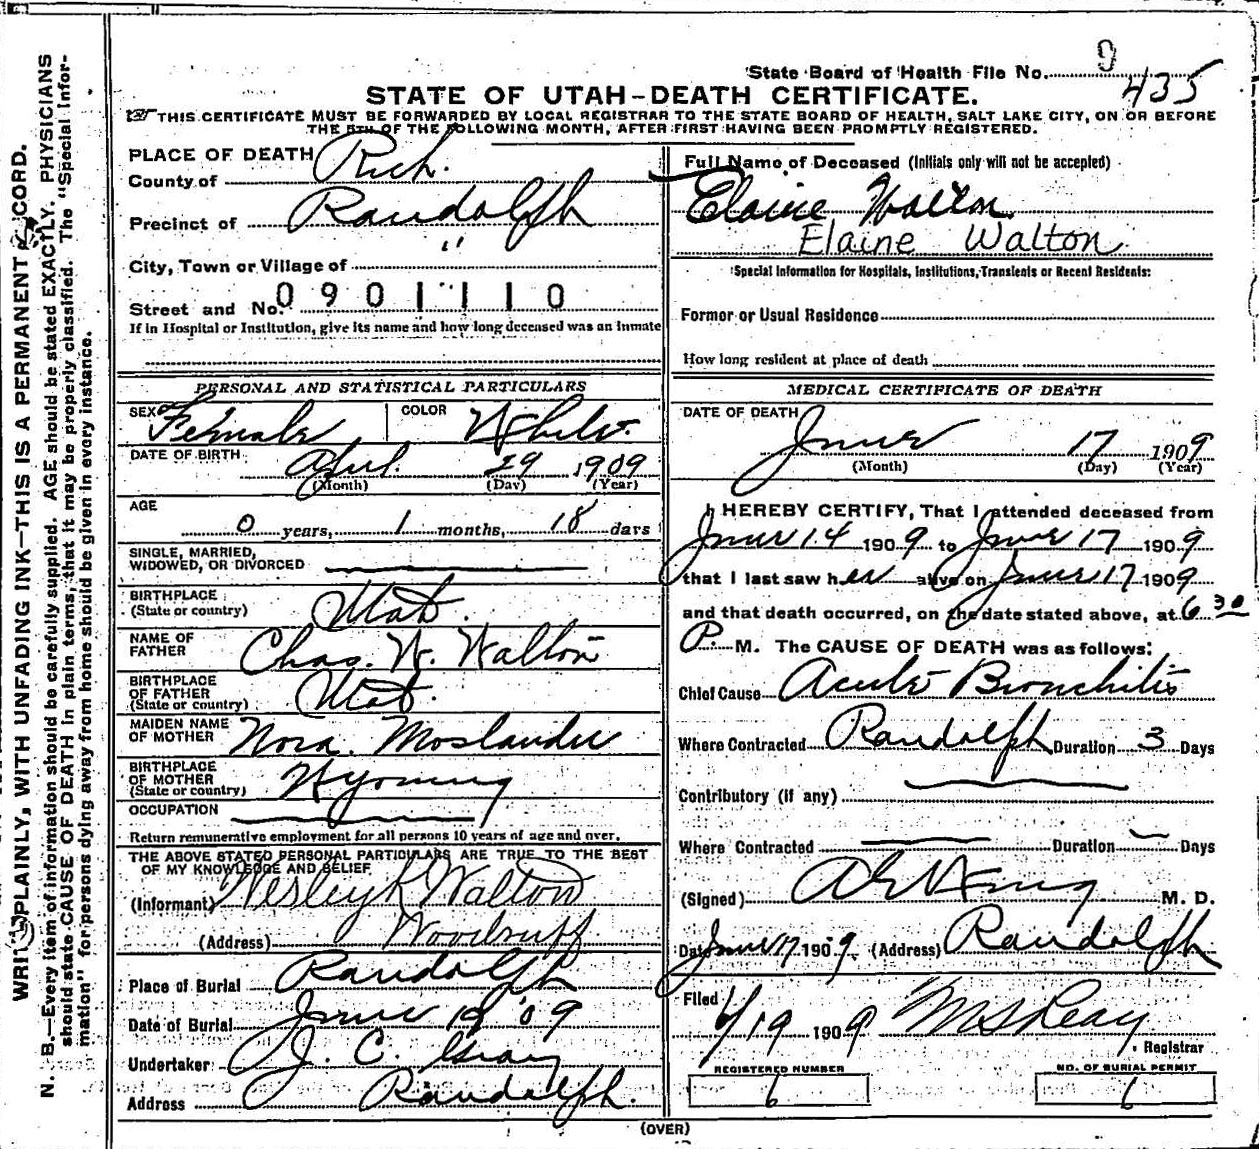 State Board of Health File No. 9
435
STATE OF UTAH–DEATH CERTIFICATE.
THIS CERTIFICATE MUST BE FORWARDED BY LOCAL REGISTRAR TO THE STATE BOARD OF HEALTH, SALT LAKE CITY, ON OR BEFORE
THE 5TH OF THE FOLLOWING MONTH, AFTER FIRST HAVING BEEN PROMPTLY REGISTERED.
WRITE PLAINLY, WITH UNFADING INK—THIS IS A PERMANENT RECORD.
N. B.—Every item of information should be carefully supplied. AGE should be stated EXACTLY. PHYSICIANS
should state CAUSE OF DEATH in plain terms, that it may be properly classified. The "Special Infor-
mation" for persons dying away from home should be given in every instance.
PLACE OF DEATH
County of Rich.
Precinct of Randolph
City, Town or Village of "
Street and No. 0901110
If in Hospital or Institution, give its name and how long deceased was an inmate
PERSONAL AND STATISTICAL PARTICULARS
SEX Female COLOR White.
DATE OF BIRTH April. 29 1909
(Month) (Day) (Year)
AGE
0 years, 1 months, 18 days
SINGLE, MARRIED,
WIDOWED, OR DIVORCED
BIRTHPLACE
(State or country) Utah.
NAME OF
FATHER Chas. W. Walton
BIRTHPLACE
OF FATHER
(State or country) Utah.
MAIDEN NAME
OF MOTHER Nora. Moslander
BIRTHPLACE
OF MOTHER
(State or country) Wyoming
OCCUPATION
Return remunerative employment for all persons 10 years of age and over.
THE ABOVE STATED PERSONAL PARTICULARS ARE TRUE TO THE BEST
OF MY KNOWLEDGE AND BELIEF
(Informant) Wesley K Walton
(Address) Woodruff
Place of Burial Randolph
Date of Burial June 18 '09
Undertaker J. C. Gray
Address Randolph.
Full Name of Deceased (Initials only will not be accepted)
Elaine Walton
Elaine Walton
Special Information for Hospitals, Institutions, Transients or Recent Residents:
Former or Usual Residence
How long resident at place of death
MEDICAL CERTIFICATE OF DEATH
DATE OF DEATH
June 17 1909
(Month) (Day) (Year)
I HEREBY CERTIFY, That I attended deceased from
June 14 1909 to June 17 1909
that I last saw her alive on June 17 1909
and that death occurred, on the date stated above, at 6.30
P. M. The CAUSE OF DEATH was as follows:
Chief Cause Acute Bronchitis
Where Contracted Randolph Duration 3 Days
Contributory (if any)
Where Contracted Duration Days
(Signed) M. D.
Date June 17 1909. (Address) Randolph
Filed
6/19 1909
Registrar
REGISTERED NUMBER
6
NO. OF BURIAL PERMIT
6
(OVER)